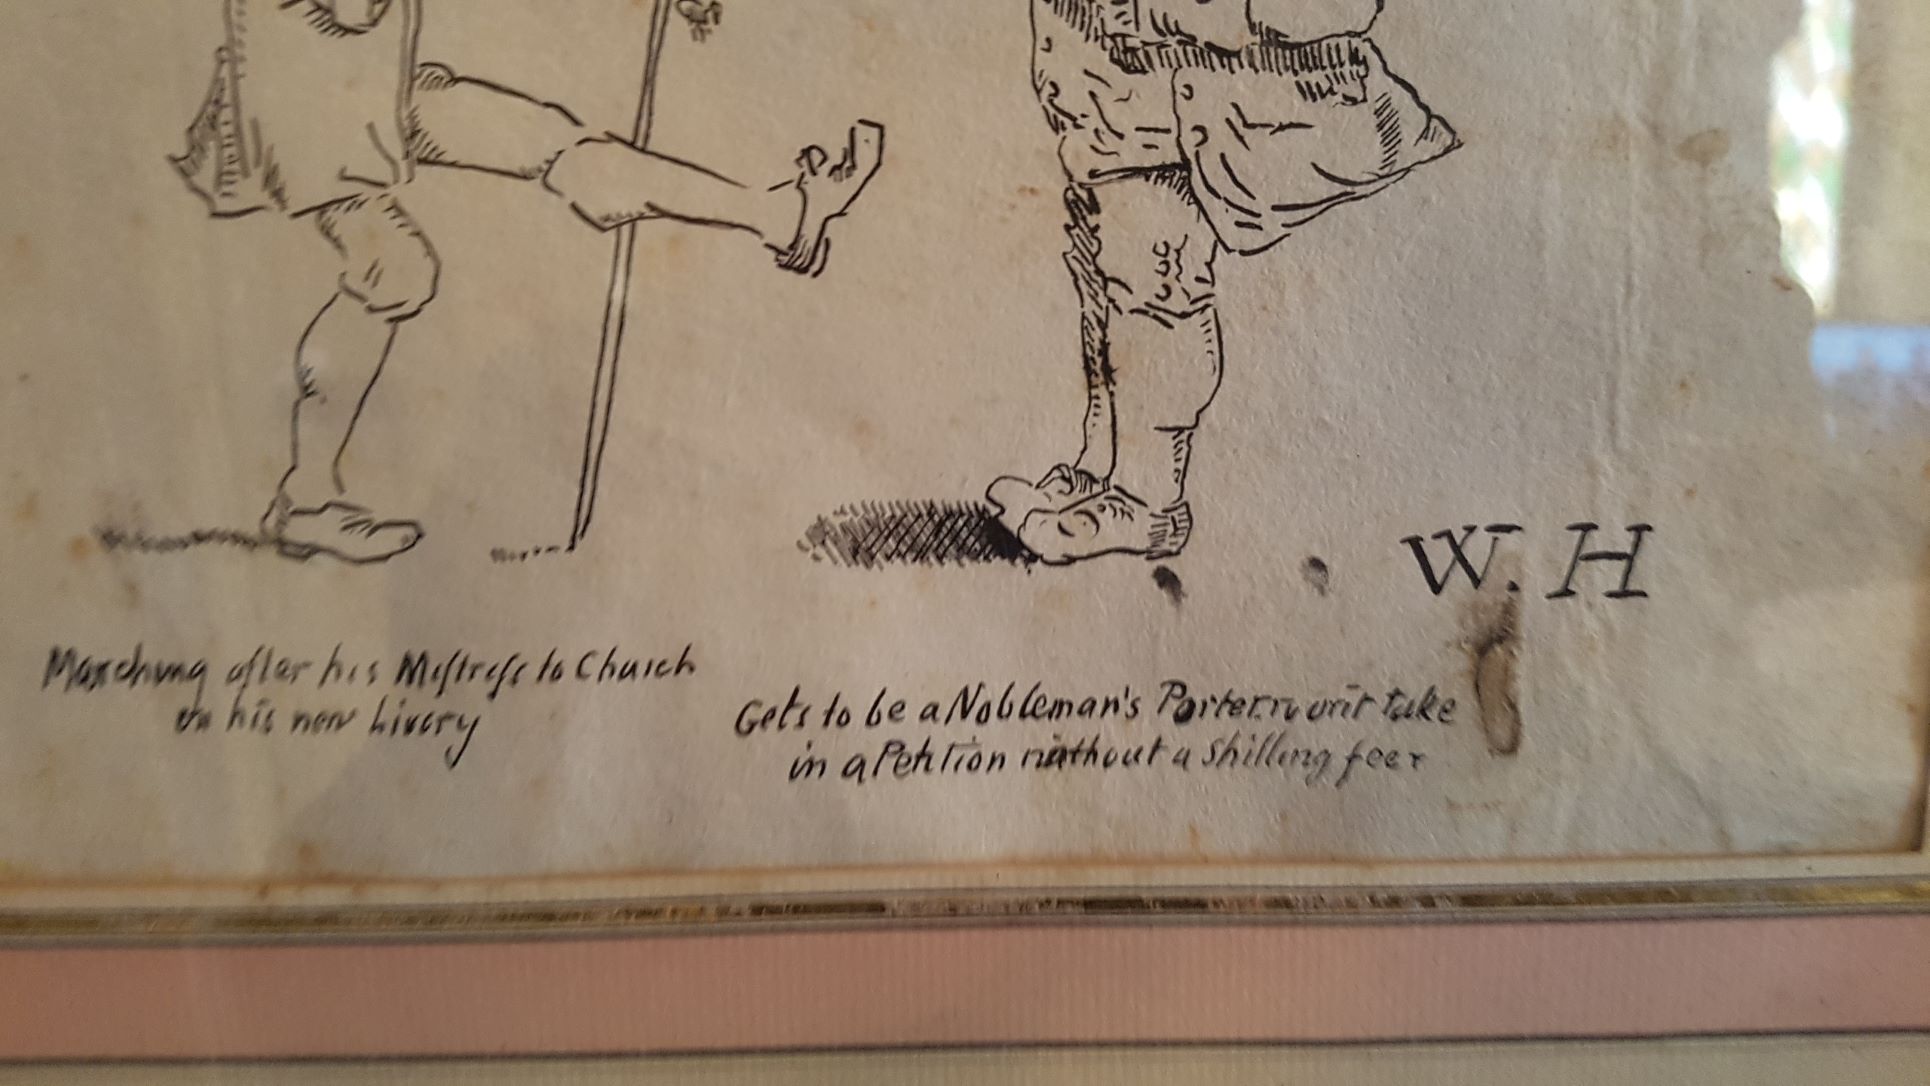 W. H
Marchung after his Mistreſs to Church
in his new Livery
Gets to be a Nobleman's Porter. wont take
in a Petition without a Shilling feer